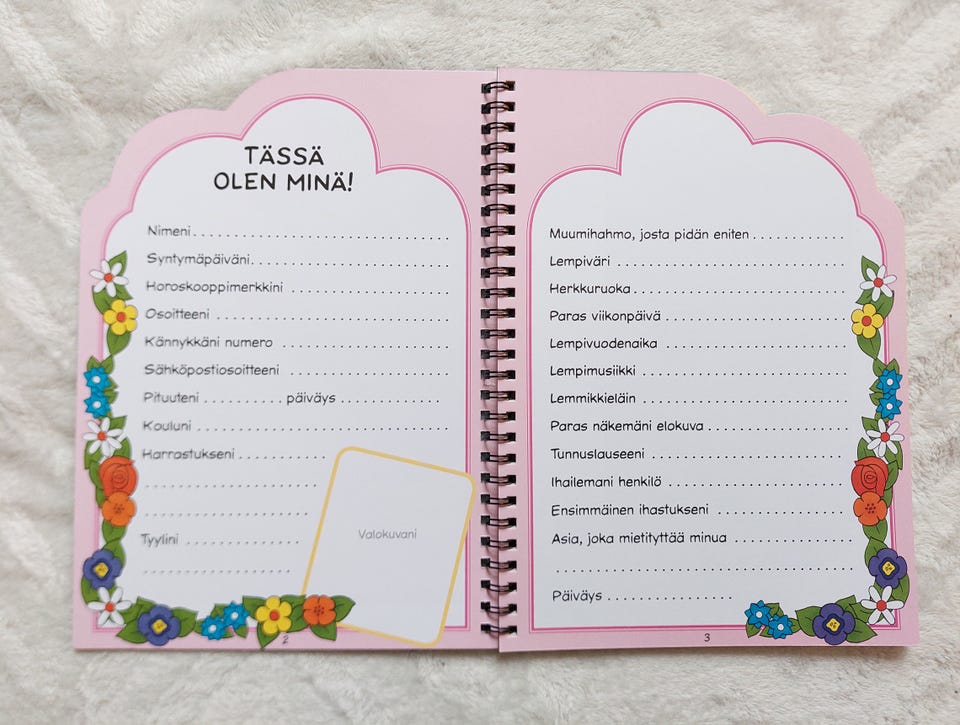 TÄSSÄ
OLEN MINÄ!
Nimeni
Syntymäpäiväni
Horoskooppimerkkini
Osoitteeni
Kännykkäni numero
Sähköpostiosoitteeni
Pituuteni päiväys
Kouluni
Harrastukseni
Tyylini
Valokuvani
2
Muumihahmo, josta pidän eniten
Lempiväri
Herkkuruoka
Paras viikonpäivä
Lempivuodenaika
Lempimusiikki
Lemmikkieläin
Paras näkemäni elokuva
Tunnuslauseeni
Ihailemani henkilö
Ensimmäinen ihastukseni
Asia, joka mietityttää minua
Päiväys
3